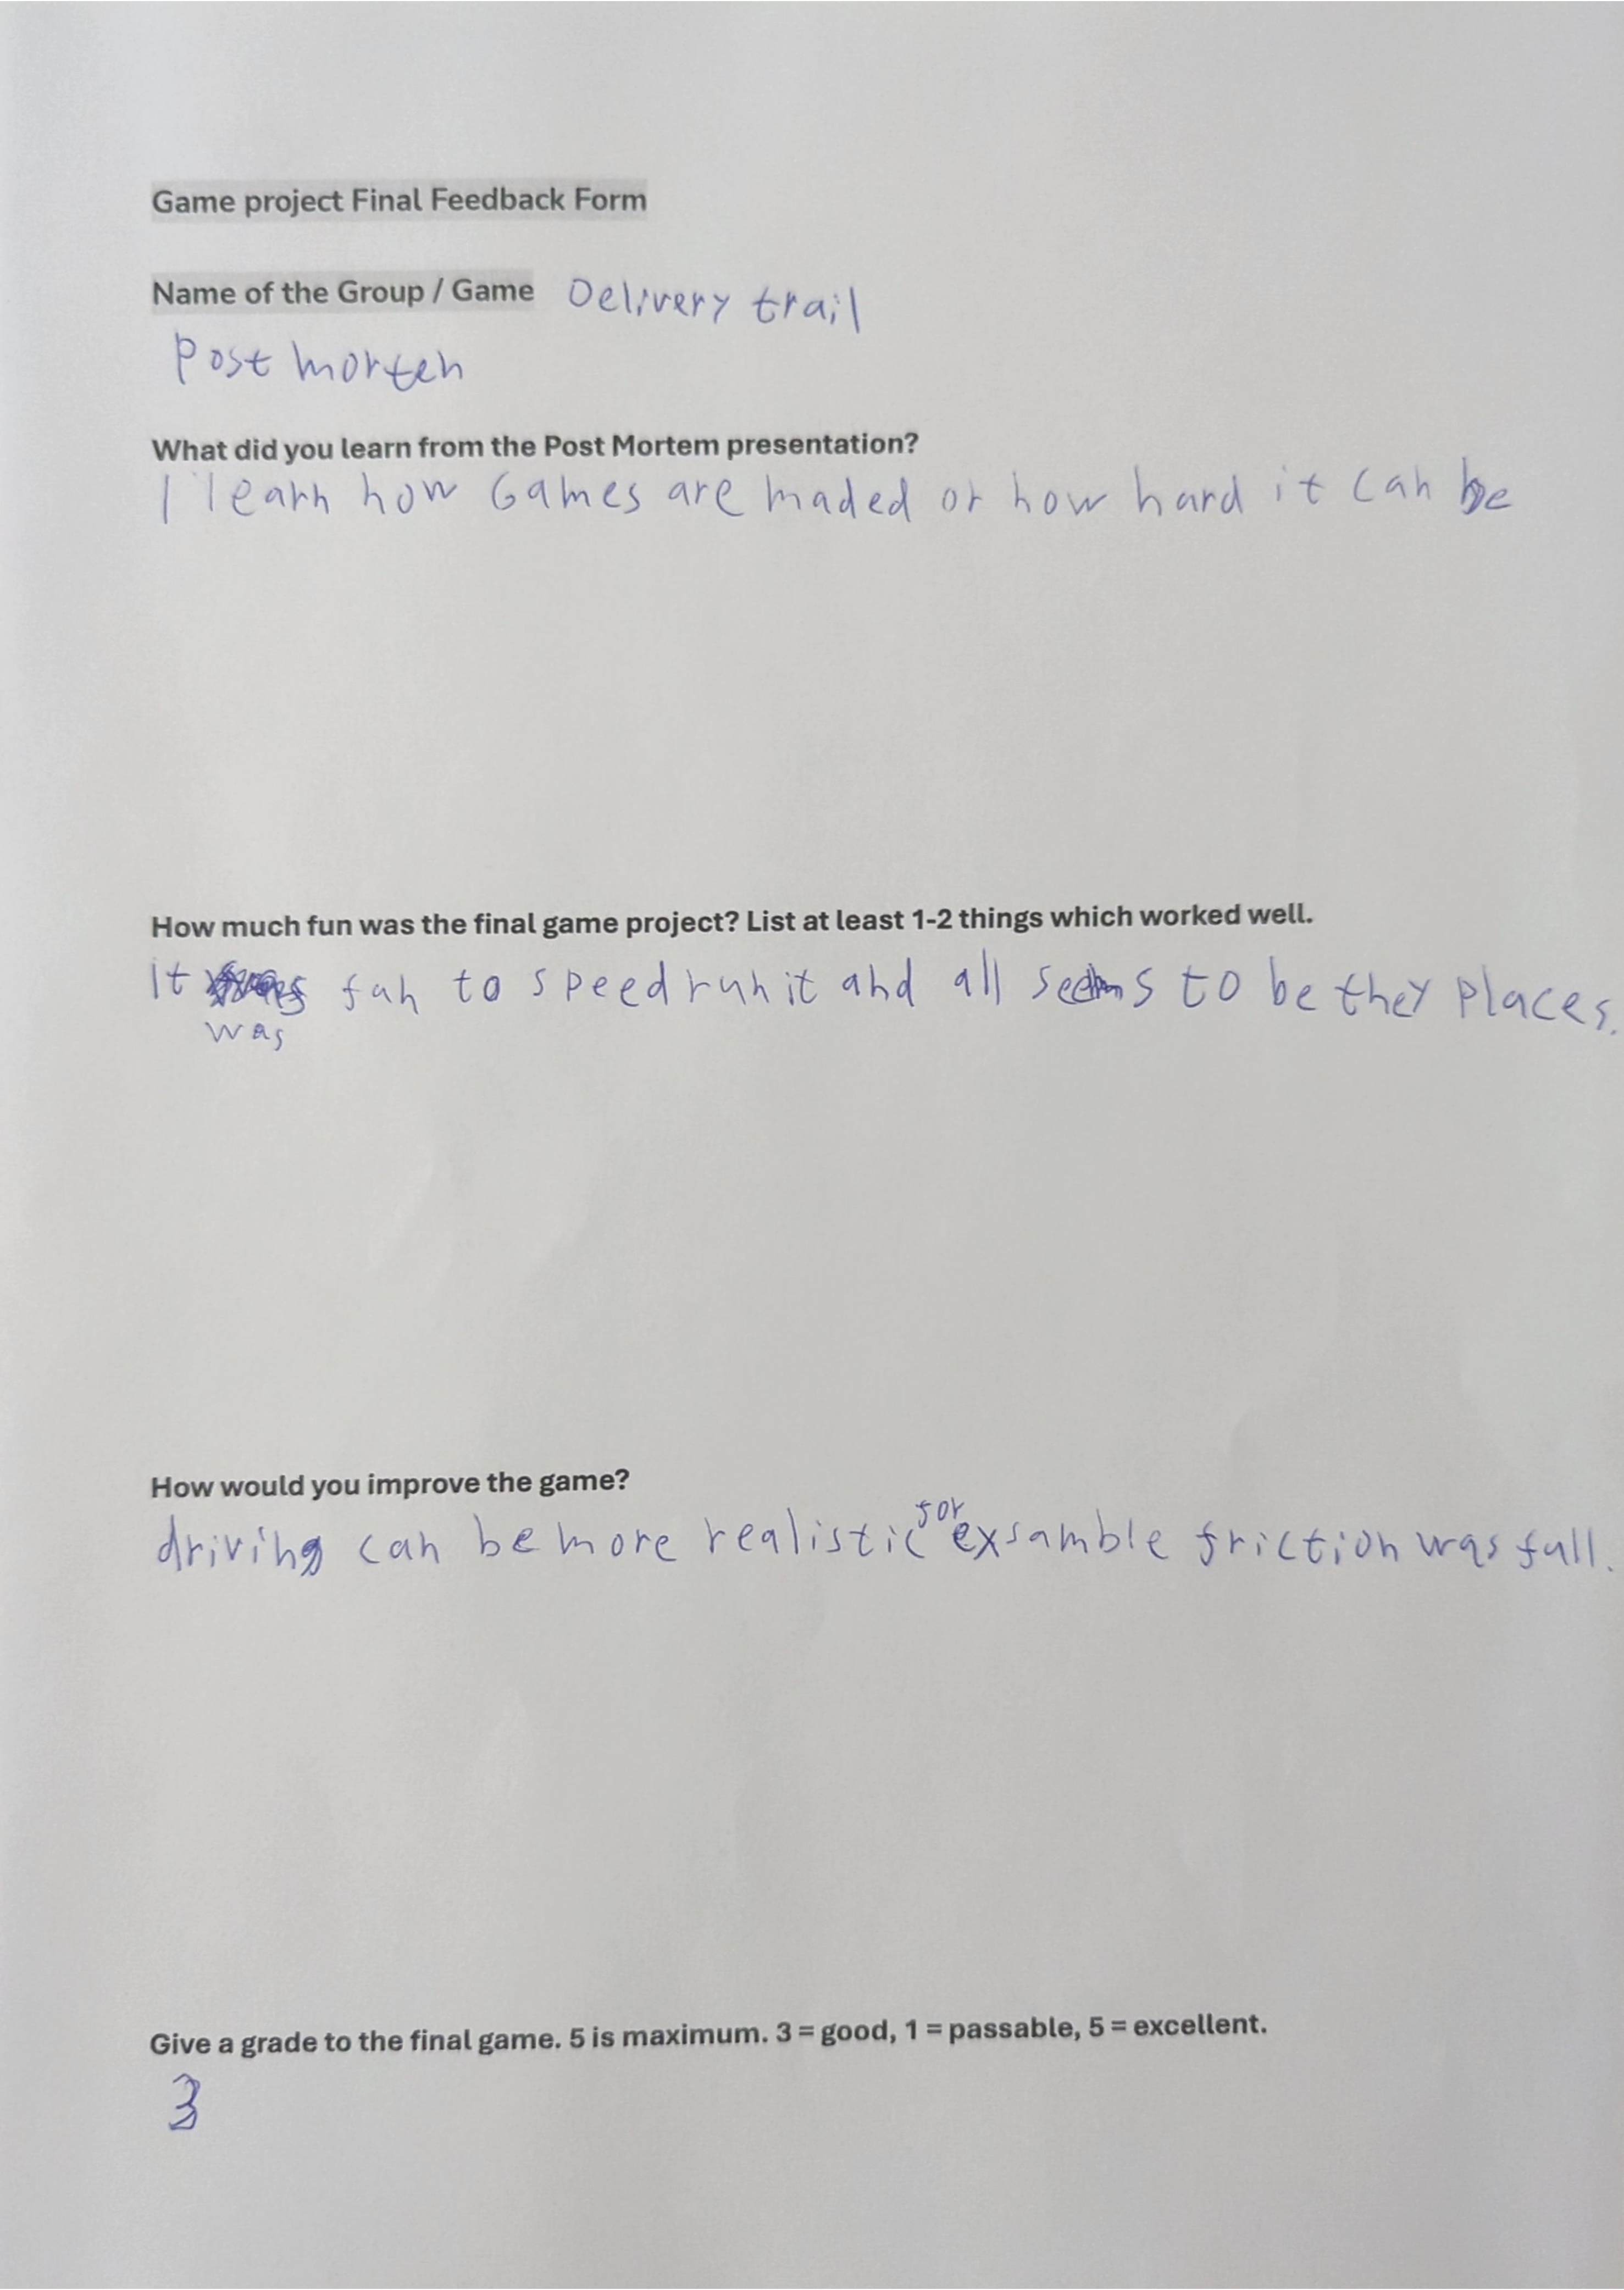 Game project Final Feedback Form
Name of the Group / Game Delivery trail
Post morten
What did you learn from the Post Mortem presentation?
I learn how Games are maded or how hard it can be
How much fun was the final game project? List at least 1-2 things which worked well.
It fun to speedrun it and all seems to be they places.
was
How would you improve the game?
for
driving can be more realistic exsamble friction was full.
Give a grade to the final game. 5 is maximum. 3 = good, 1 = passable, 5 = excellent.
3